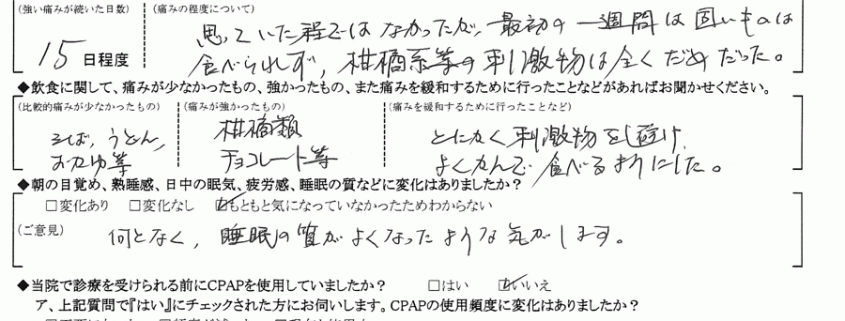 (強い痛みが続いた日数) (痛みの程度について)
15 日程度
思っていた程ではなかったが、最初の一週間は固いものは
食べられず、柑橘系等の刺激物は全くだめだった。
◆飲食に関して、痛みが少なかったもの、強かったもの、また痛みを緩和するために行ったことなどがあればお聞かせください。
(比較的痛みが少なかったもの) (痛みが強かったもの) (痛みを緩和するために行ったことなど)
そば、うどん、
おかゆ等
柑橘類
チョコレート等
とにかく刺激物を避け、
よくかんで食べるようにした。
◆朝の目覚め、熟睡感、日中の眠気、疲労感、睡眠の質などに変化はありましたか?
□変化あり □変化なし ☑もともと気になっていなかったためわからない
(ご意見) 何となく、睡眠の質がよくなったような気がします。
◆当院で診療を受けられる前にCPAPを使用していましたか? □はい ☑いいえ
ア、上記質問で『はい』にチェックされた方にお伺いします。CPAPの使用頻度に変化はありましたか?